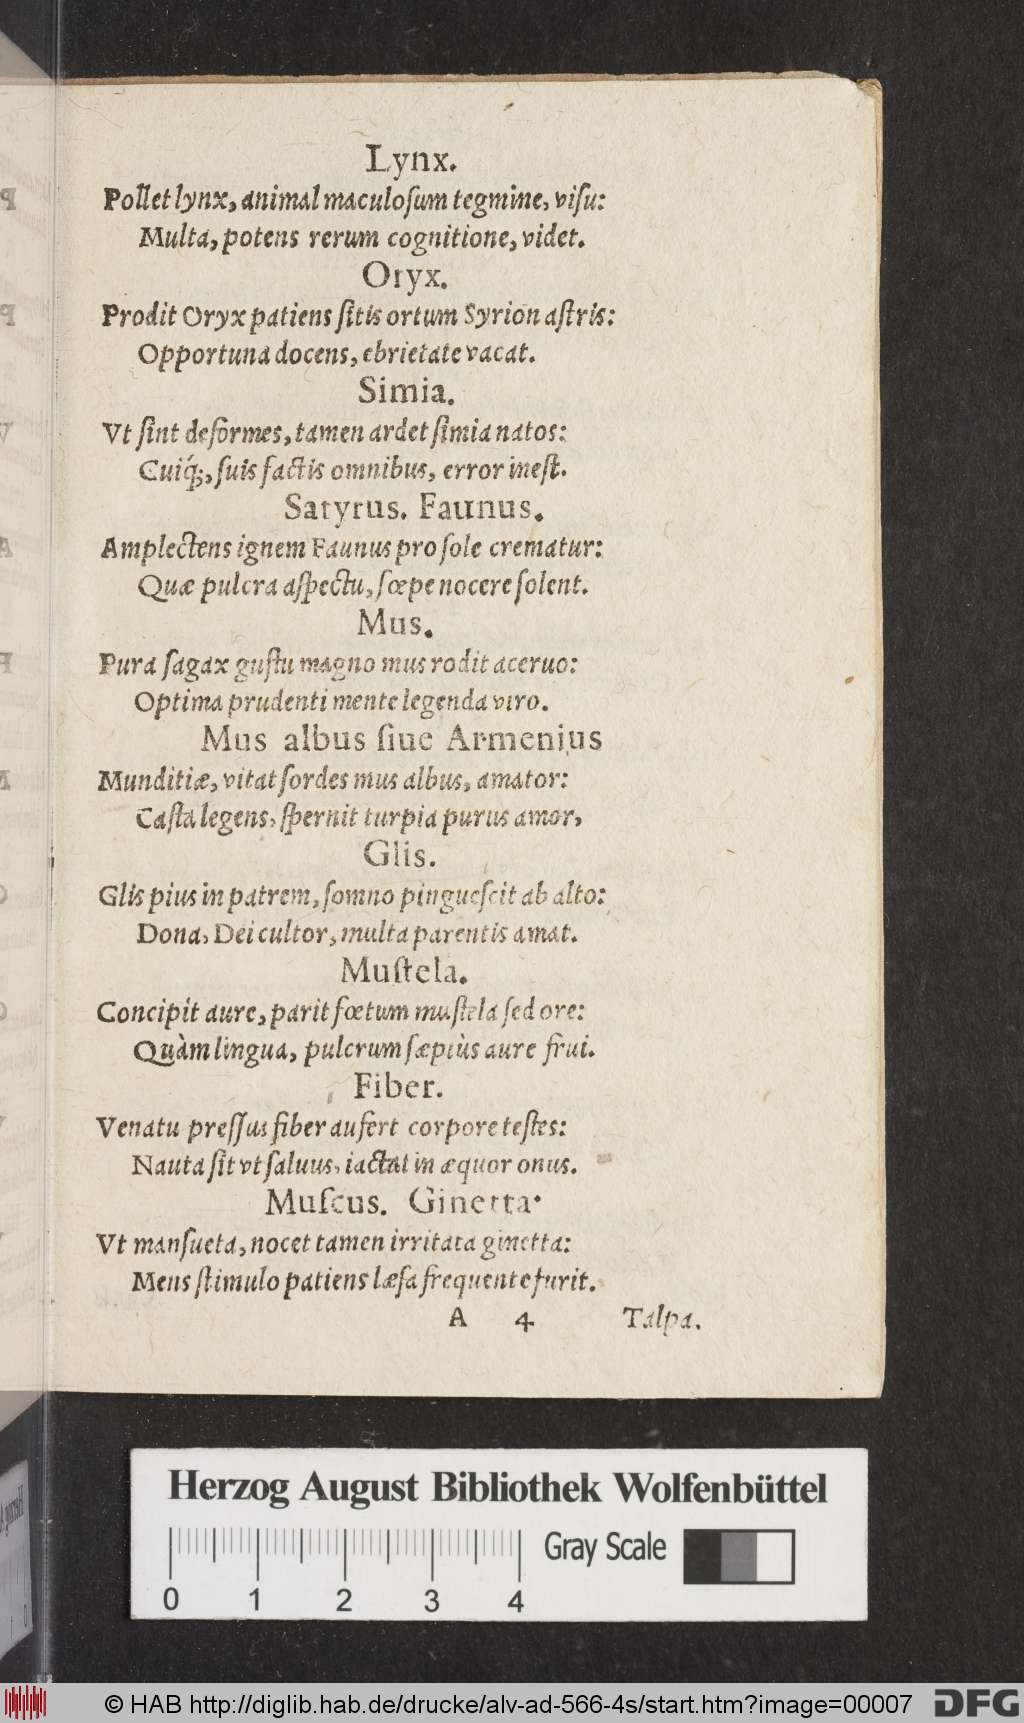 Lynx.
Pollet lynx, animal maculoſum tegmine, viſu:
Multa, potens rerum cognitione, videt.
Oryx.
Prodit Oryx patiens ſitis ortum Syrion aſtris:
Opportuna docens, ebrietate vacat.
Simia.
Vt ſint deformes, tamen ardet ſimia natos:
Cuiq́;, ſuis factis omnibus, error ineſt.
Satyrus. Faunus.
Amplectens ignem Faunus pro ſole crematur:
Quæ pulcra aſpectu, ſœpe nocere ſolent.
Mus.
Pura ſagax guſtu magno mus rodit aceruo:
Optima prudenti mente legenda viro.
Mus albus ſiue Armenius
Munditiæ, vitat ſordes mus albus, amator:
Caſta legens, ſpernit turpia purus amor,
Glis.
Glis pius in patrem, ſomno pingueſcit ab alto:
Dona, Dei cultor, multa parentis amat.
Muſtela.
Concipit aure, parit fœtum muſtela ſed ore:
Quàm lingua, pulcrum ſæpiùs aure frui.
Fiber.
Venatu preſſus fiber aufert corpore teſtes:
Nauta ſit vt ſaluus, iactat in æquor onus.
Muſcus. Ginetta·
Vt manſueta, nocet tamen irritata ginetta:
Mens ſtimulo patiens læſa frequente furit.
A 4 Talpa.
Herzog August Bibliothek Wolfenbüttel
Gray Scale
0 1 2 3 4
© HAB http://diglib.hab.de/drucke/alv-ad-566-4s/start.htm?image=00007
DFG